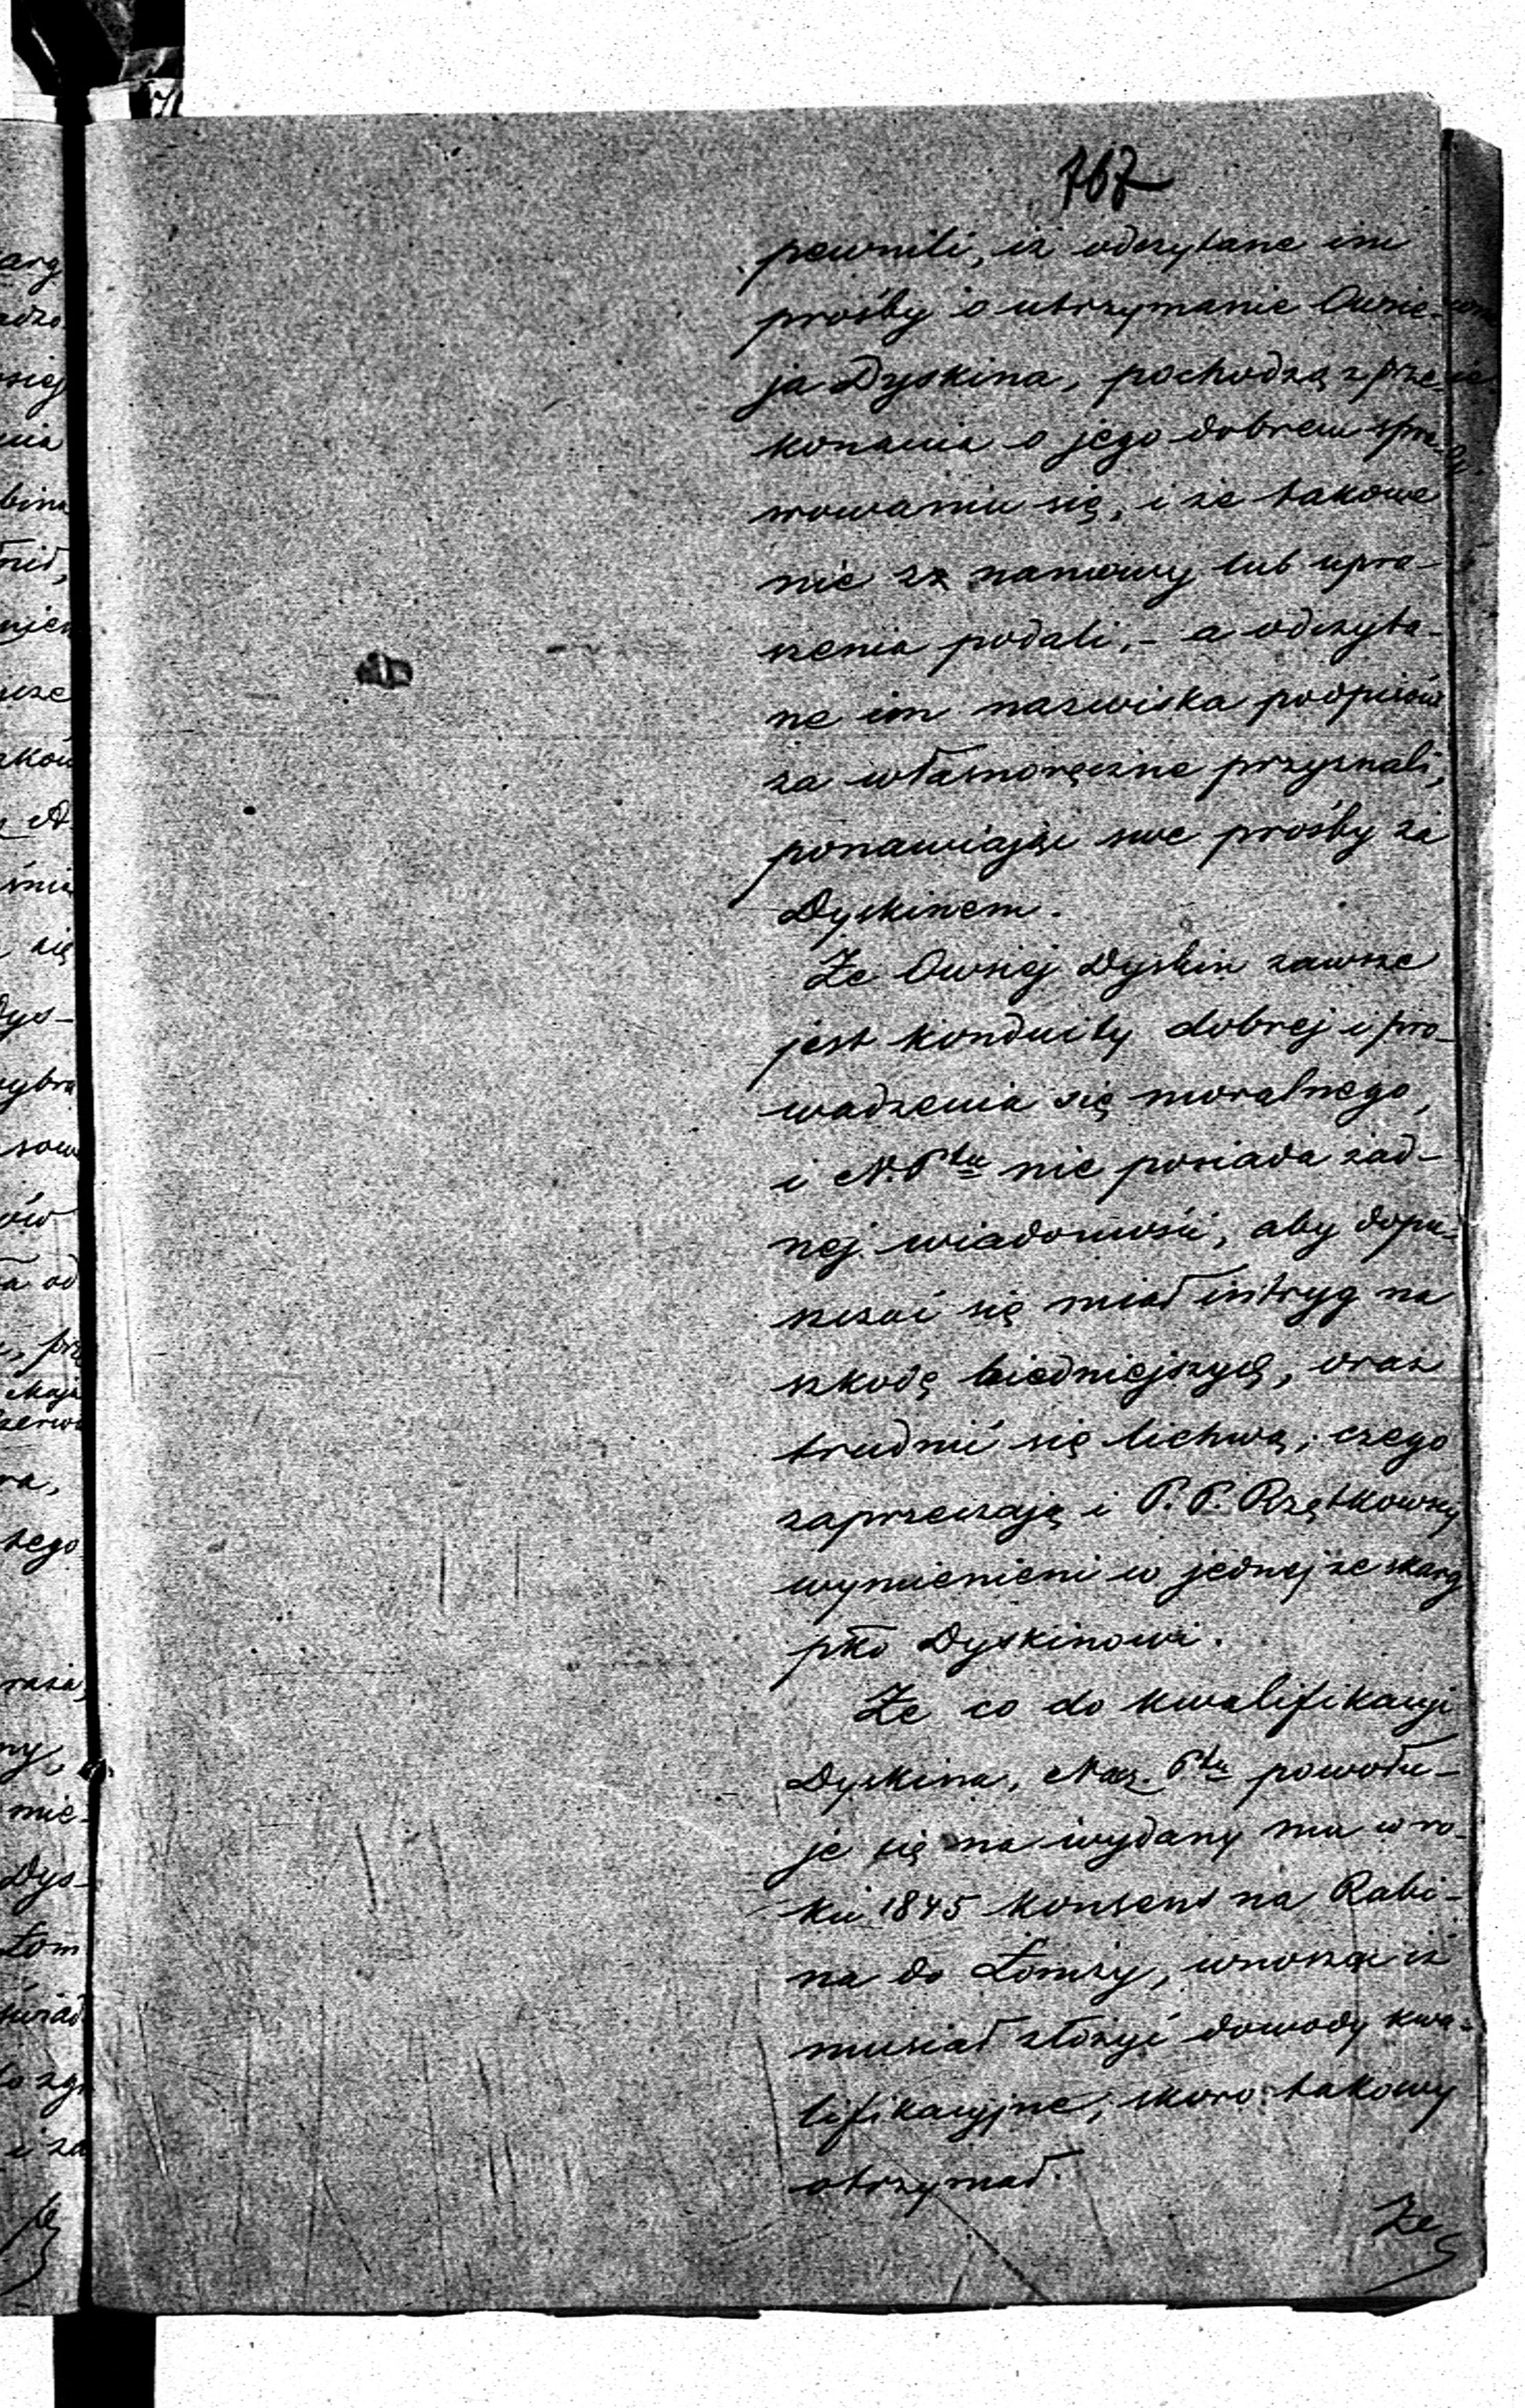 767
pewnili, iż odczytane im
prośby o utrzymanie Owsie-
ja Dyskina, pochodzą z prze-
konania o jego dobrem spra-
wowaniu się, i że takowe
nie za namowy lub upra-
szenia podali, - a odczyta-
ne im nazwiska podpisów
za własnoręczne przyznali,
ponawiając swe prośby za
Dyskinem.
Że Owsiej Dyskin zawsze
jest konduity dobrej i pro-
wadzenia się moralnego,
i N. Ptu nie posiada żad-
nej wiadomości, aby dopu-
szczać się miał intryg na
szkodę biedniejszych, oraz
trudnić się lichwą; czego
zaprzeczają i P. P. Rzętkowscy
wymienieni w jednej ze skarg
pko Dyskinowi.
Że co do kwalifikacyi
Dyskina, Nacz. Ptu powołu-
je się na wydany mu w ro-
ku 1845 konsens na Rabi-
na do Łomży, wnosząc iż
musiał złożyć dowody kwa-
lifikacyjne, skoro takowy
otrzymał.
Że